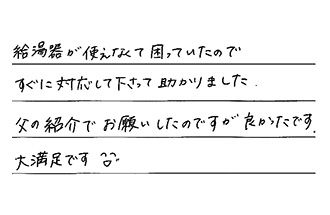 給湯器が使えなくて困っていたので
すぐに対応して下さって助かりました.
父の紹介でお願いしたのですが良かたです.
大満足です